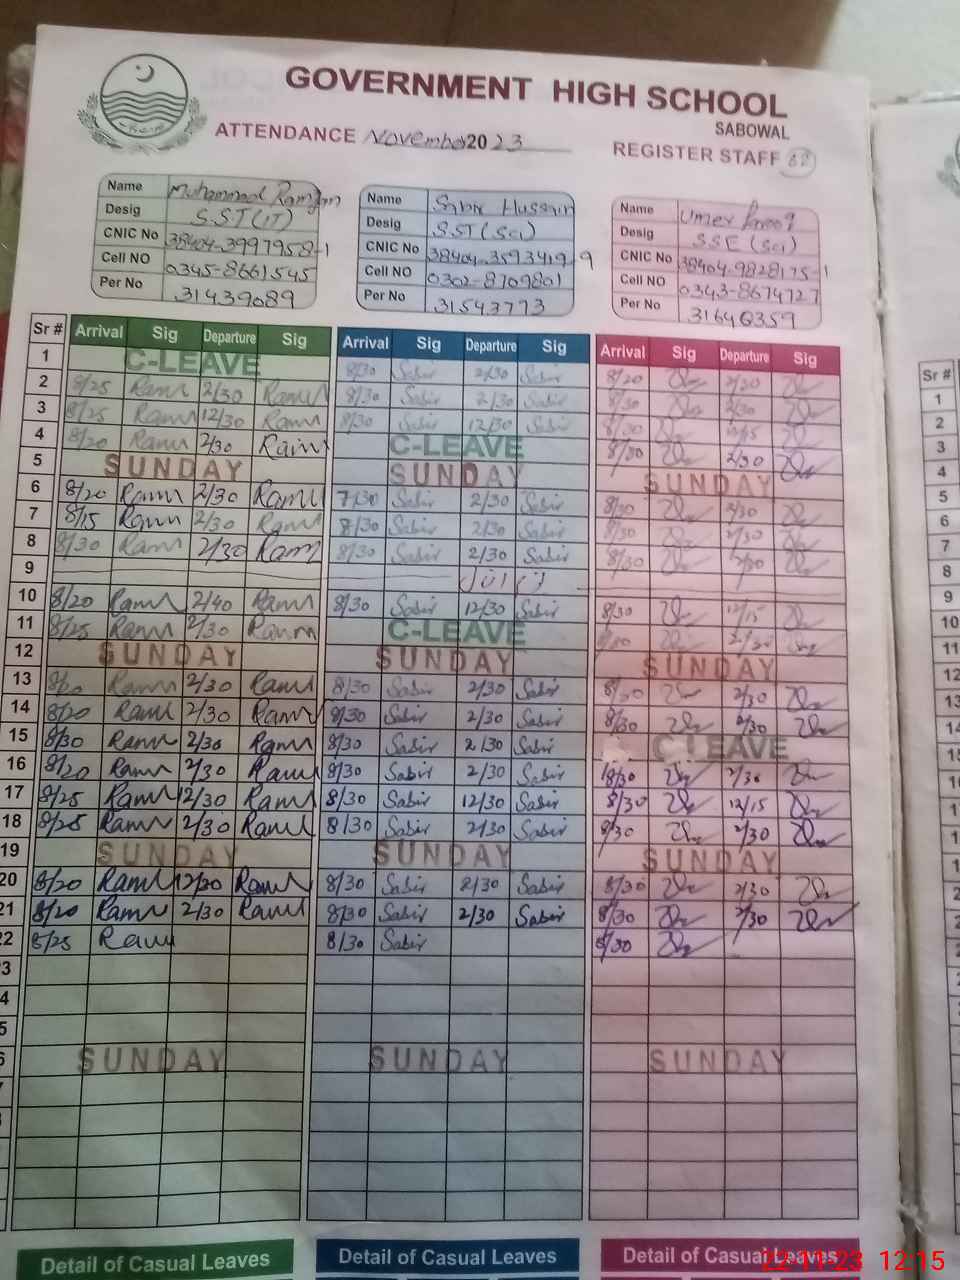 GOVERNMENT HIGH SCHOOL
SABOWAL
ATTENDANCE November 2023
REGISTER STAFF
Name Muhammad Ramzan
Desig S.ST(IT)
CNIC No 38404-3997958-1
Cell NO 0345-8661545
Per No 31439089
Name Sabir Hussain
Desig S.ST(Sci)
CNIC No 38404-3593419-9
Cell NO 0302-8709801
Per No 31543773
Name Umer Farooq
Desig SSE(Sci)
CNIC No 38404-9828175-1
Cell NO 0343-8674727
Per No 31646359
Sr # Arrival Sig Departure Sig Arrival Sig Departure Sig Arrival Sig Departure Sig
1 C-LEAVE 8/30 Sabir 2/30 Sabir 8/20 2/20
2 8/25 Ram 2/30 Ram 8/30 Sabir 2/30 Sabir 8/30 2/30
3 8/25 Ram 12/30 Ram 8/30 Sabir 12/30 Sabir 8/30 12/15
4 8/20 Ram 2/30 Ram C-LEAVE 8/30 2/30
5 SUNDAY SUNDAY SUNDAY
6 8/20 Ram 2/30 Ram 7/30 Sabir 2/30 Sabir 8/30 2/30
7 8/15 Ram 2/30 Ram 8/30 Sabir 2/30 Sabir 8/30 2/30
8 8/30 Ram 2/30 Ram 8/30 Sabir 2/30 Sabir 8/30 2/30
9
10 8/20 Ram 2/40 Ram 8/30 Sabir 12/30 Sabir 8/30 12/15
11 8/25 Ram 2/30 Ram C-LEAVE 2/30
12 SUNDAY SUNDAY SUNDAY
13 8/20 Ram 2/30 Ram 8/30 Sabir 2/30 Sabir 8/30 2/30
14 8/20 Ram 2/30 Ram 8/30 Sabir 2/30 Sabir 8/30 2/30
15 8/30 Ram 2/30 Ram 8/30 Sabir 2/30 Sabir C-LEAVE
16 8/20 Ram 2/30 Ram 8/30 Sabir 2/30 Sabir 8/30 2/30
17 8/25 Ram 12/30 Ram 8/30 Sabir 12/30 Sabir 8/30 12/15
18 8/25 Ram 2/30 Ram 8/30 Sabir 2/30 Sabir 8/30 2/30
19 SUNDAY SUNDAY SUNDAY
20 8/20 Ram 2/30 Ram 8/30 Sabir 2/30 Sabir 8/30 2/30
21 8/20 Ram 2/30 Ram 8/30 Sabir 2/30 Sabir 8/30 2/30
22 8/25 Ram 8/30 Sabir 8/30
3
4
5
6 SUNDAY SUNDAY SUNDAY
Detail of Casual Leaves Detail of Casual Leaves Detail of Casual Leaves
22-11-23 12:15
Sr #
1
2
3
4
5
6
7
8
9
10
11
12
13
14